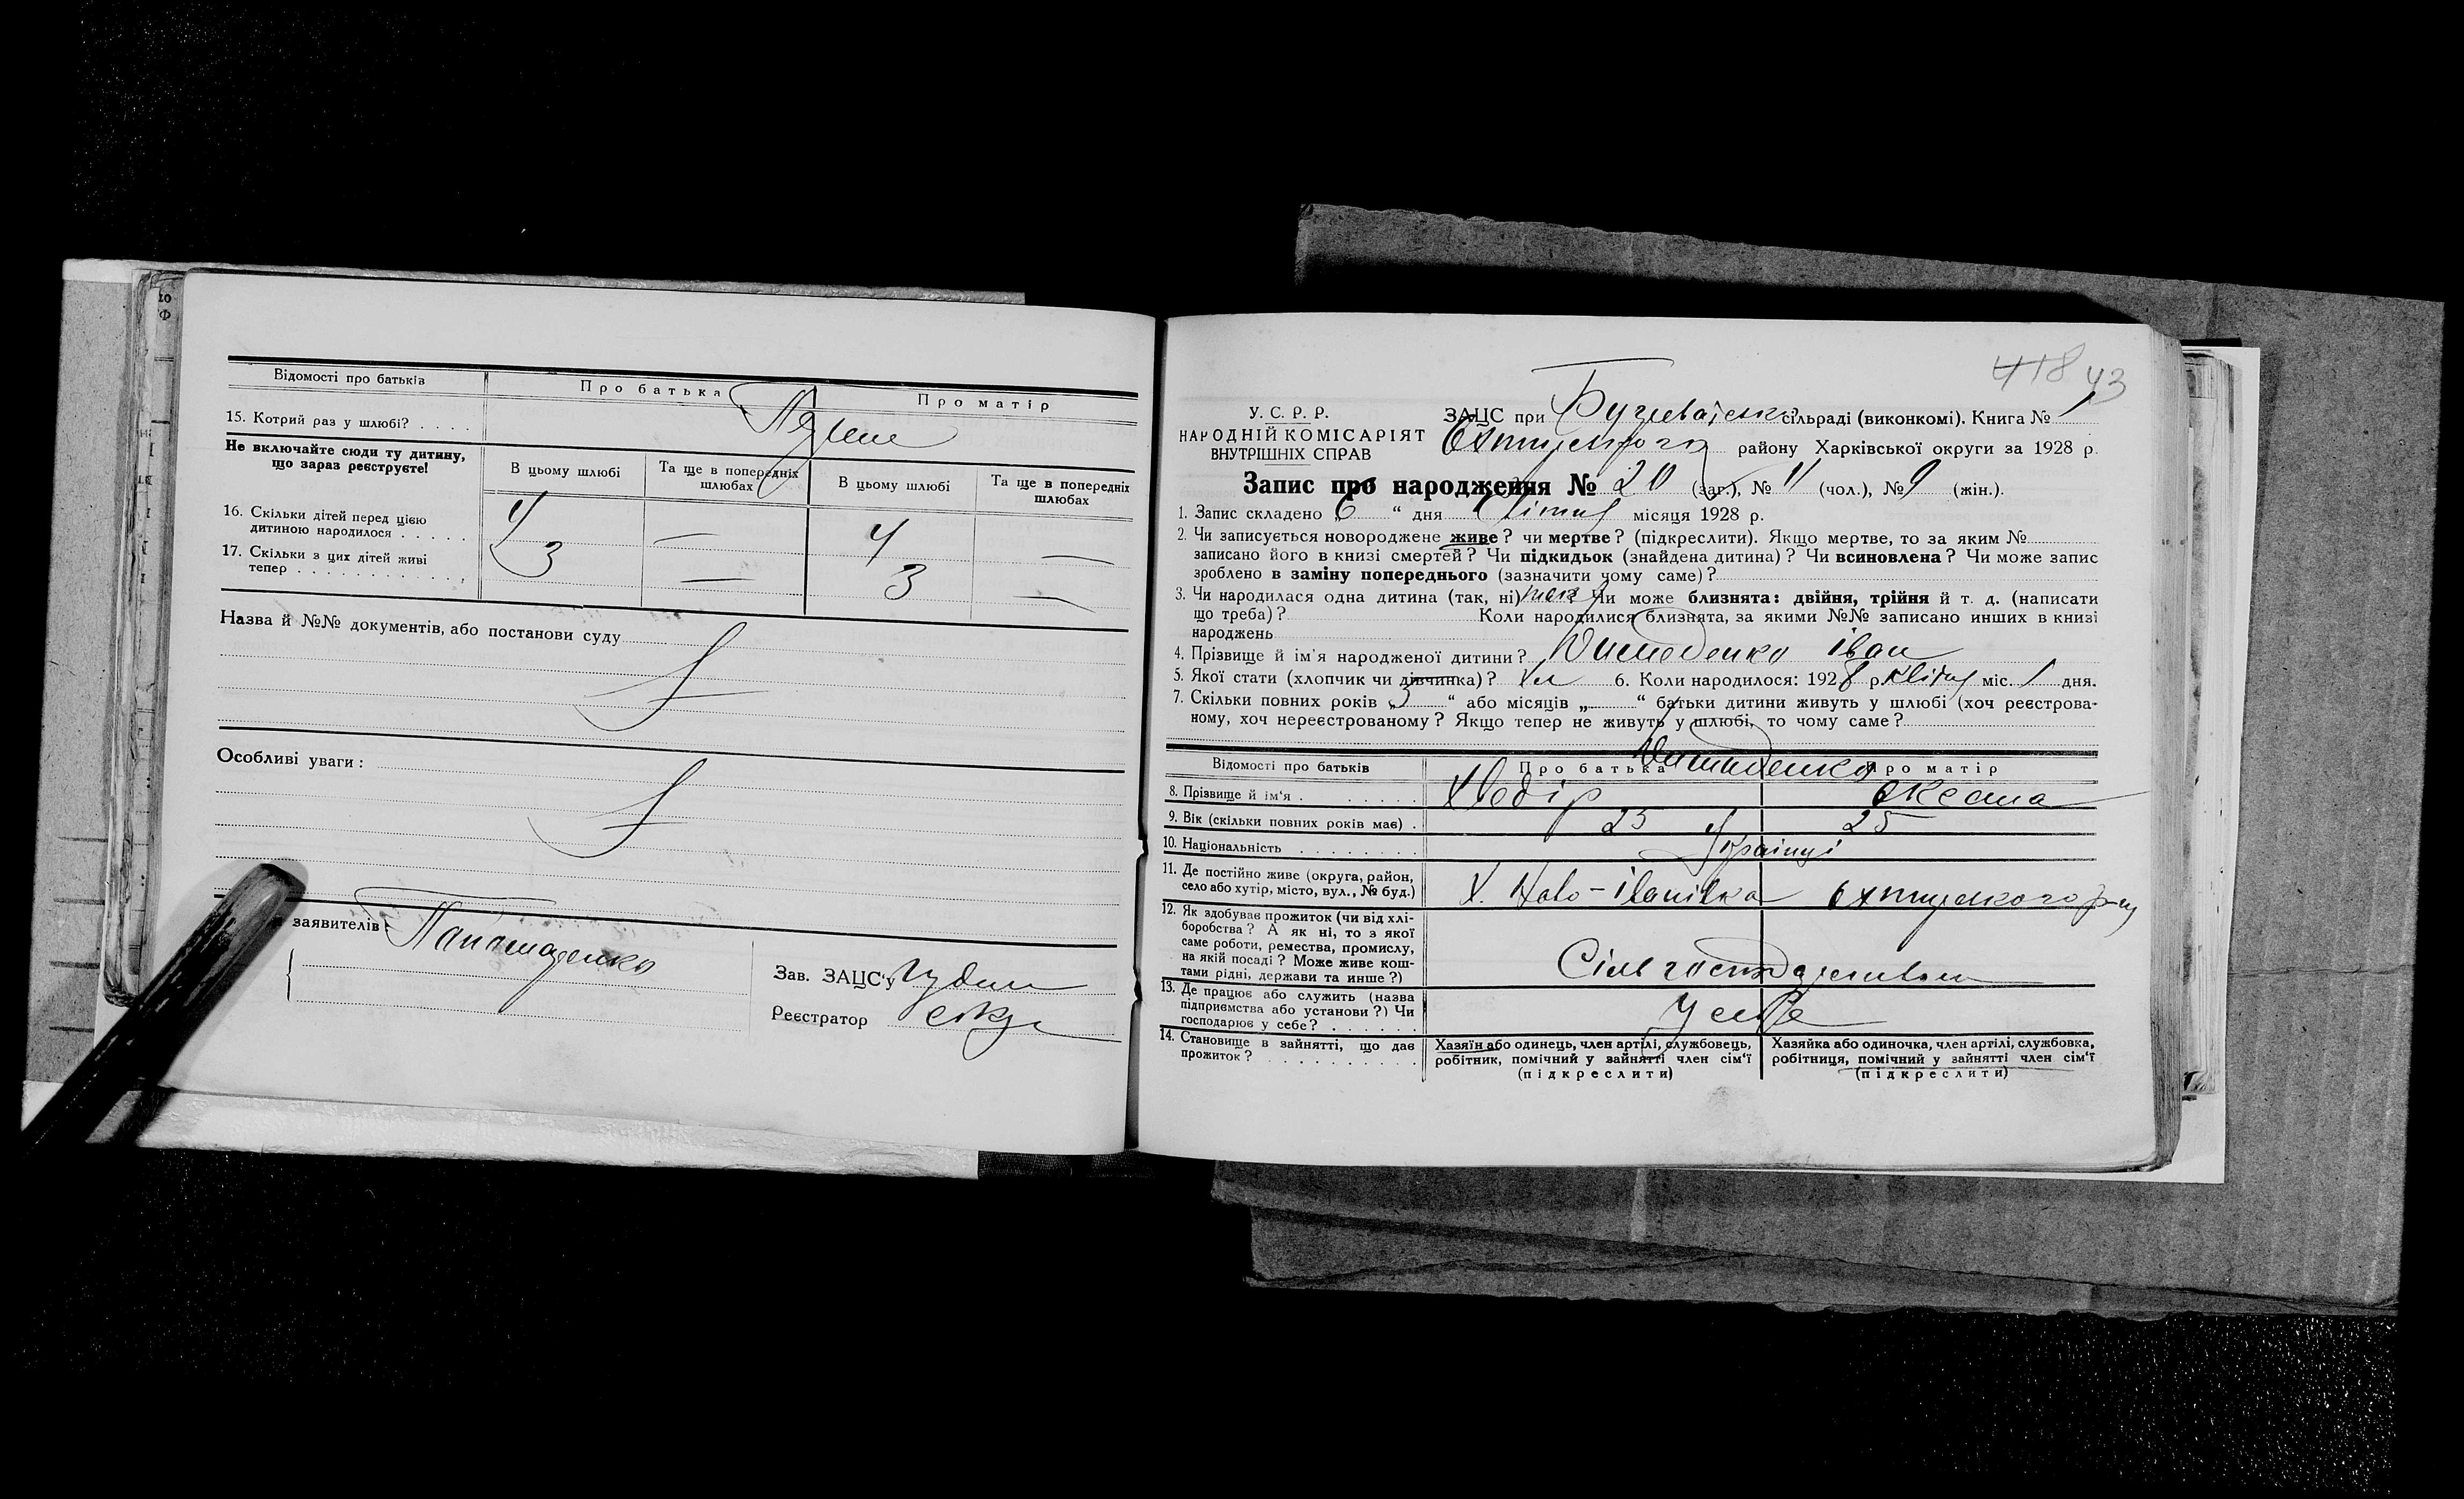 Відомості про батьків
Про батька
Про матір
15. Котрий раз у шлюбі? . . . .
Не включайте сюди ту дитину,
що зараз реєструєте!
В цьому шлюбі
Та ще в попередніх
шлюбах
В цьому шлюбі
Та ще в попередніх
шлюбах
16. Скільки дітей перед цією
дитиною народилося . . . . .
4 — 4 —
17. Скільки з цих дітей живі
тепер . . . . . . . . . . . .
3 — 3 —
Назва й №№ документів, або постанови суду
Особливі уваги:
заявителів:
Зав. ЗАЦС'у
Реєстратор
418 43
У. С. Р. Р.
НАРОДНІЙ КОМІСАРІЯТ
ВНУТРІШНІХ СПРАВ
ЗАЦС при сільраді (виконкомі). Книга № 1
району Харківської округи за 1928 р.
Запис про народження № 20 (заг.), № 11 (чол.), № 9 (жін.).
1. Запис складено „6“ дня місяця 1928 р.
2. Чи записується новороджене живе? чи мертве? (підкреслити). Якщо мертве, то за яким №
записано його в книзі смертей? Чи підкидьок (знайдена дитина)? Чи всиновлена? Чи може запис
зроблено в заміну попереднього (зазначити чому саме)?
3. Чи народилася одна дитина (так, ні) так Чи може близнята: двійня, трійня й т. д. (написати
що треба)? Коли народилися близнята, за якими №№ записано инших в книзі
народжень
4. Прізвище й ім'я народженої дитини? іван
5. Якої стати (хлопчик чи дівчинка)? 6. Коли народилося: 1928 р. міс. 1 дня.
7. Скільки повних років „3“ або місяців „ “ батьки дитини живуть у шлюбі (хоч реєстрова-
ному, хоч нереєстрованому? Якщо тепер не живуть у шлюбі, то чому саме?
Відомості про батьків
Про батька
Про матір
8. Прізвище й ім'я . . . . . .
Хведір Оксана
9. Вік (скільки повних років має) .
25 25
10. Національність . . . . . . . .
Українці
11. Де постійно живе (округа, район,
село або хутір, місто, вул., № буд.)
Х. Ново-іванівка
12. Як здобуває прожиток (чи від хлі-
боробства? А як ні, то з якої
саме роботи, ремества, промислу,
на якій посаді? Може живе кош-
тами рідні, держави та инше?)
13. Де працює або служить (назва
підприємства або установи?) Чи
господарює у себе? . . . . . .
У себе
14. Становище в зайнятті, що дає
прожиток? . . . . . . . . . .
Хазяїн або одинець, член артілі, службовець,
робітник, помічний у зайнятті член сім'ї
(підкреслити)
Хазяйка або одиночка, член артілі, службовка,
робітниця, помічний у зайнятті член сім'ї
(підкреслити)